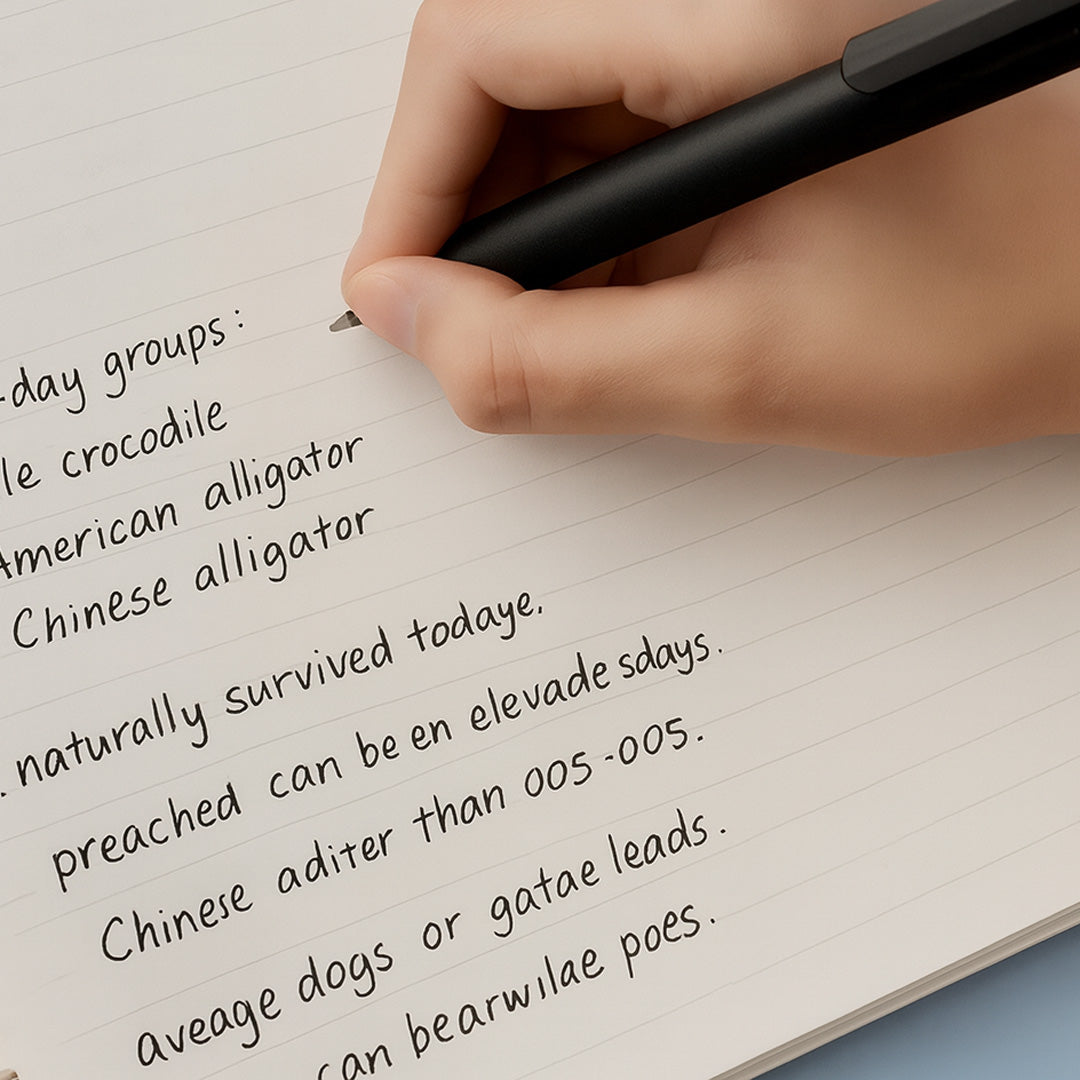 -day groups:
le crocodile
American alligator
Chinese alligator
. naturally survived todaye.
preached can be en elevade sdays.
Chinese aditer than 005-005.
aveage dogs or gatae leads.
can bearwilae poes.